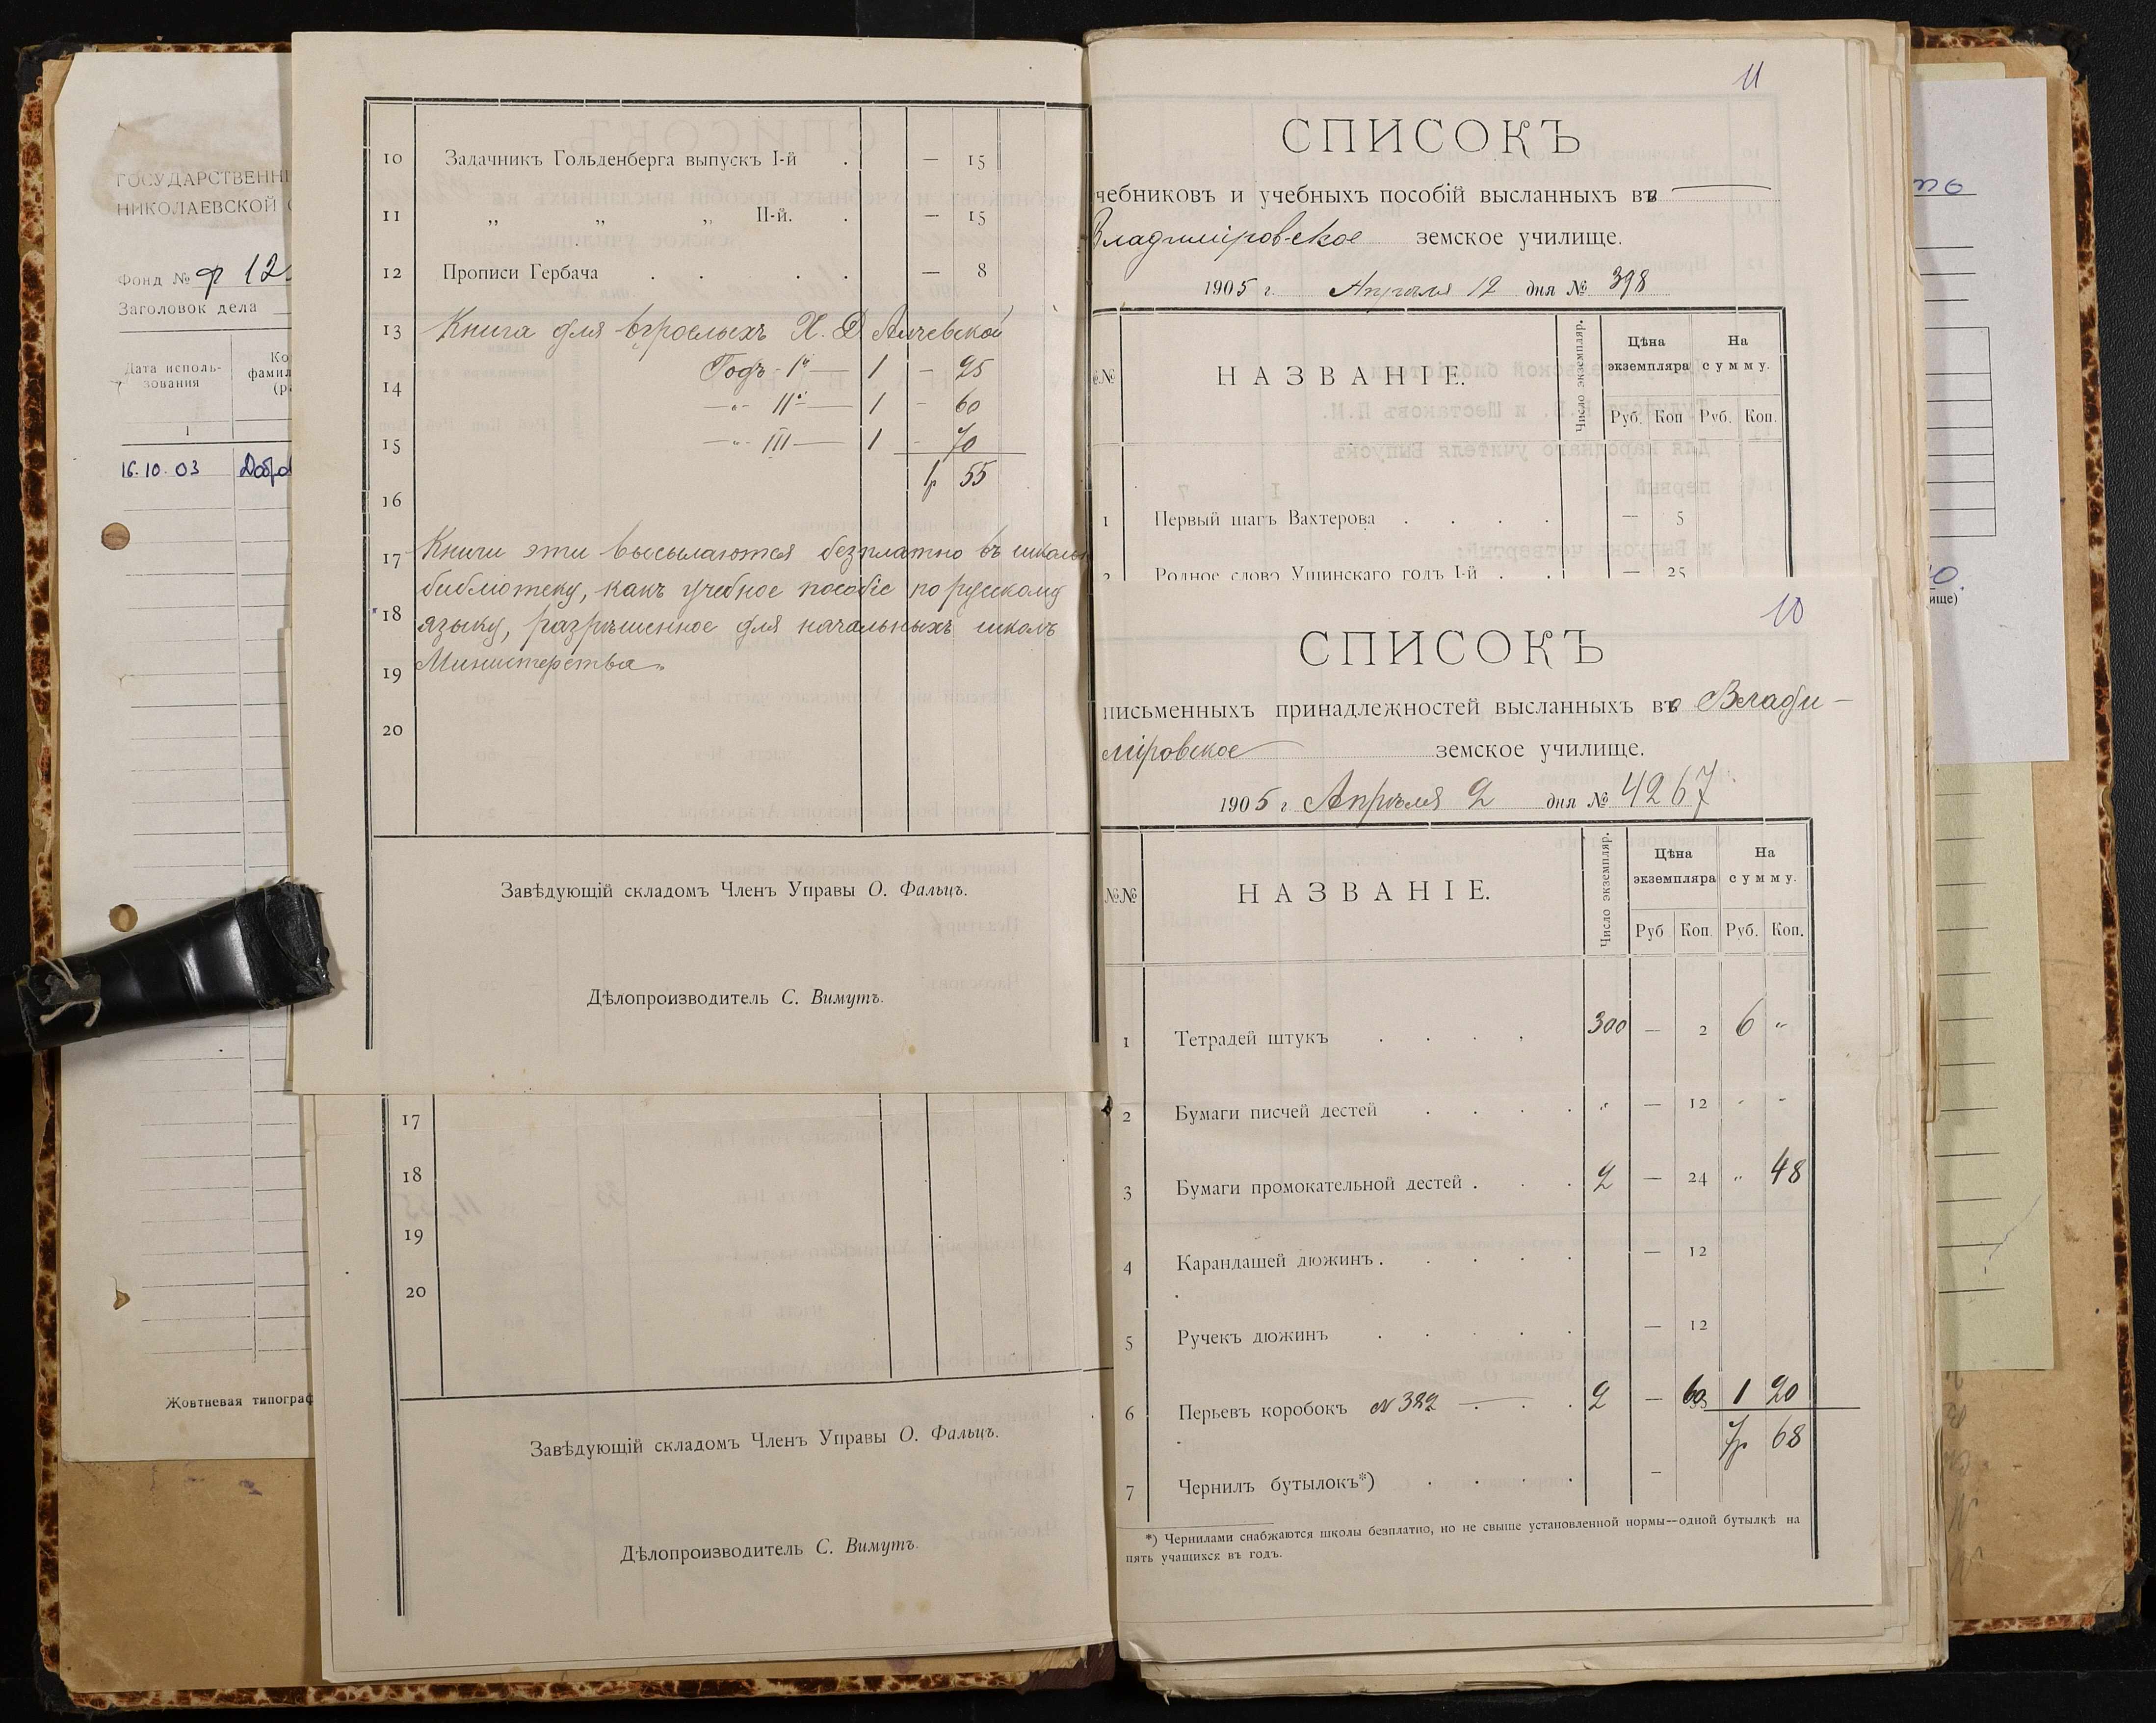 ГОСУДАРСТВЕННЫ
НИКОЛАЕВСКОЙ
Фонд № Ф 12
Заголовок дела
Дата исполь-
зования
1
16.10.03
Жовтневая типограф
10 Задачникъ Гольденберга выпускъ I-й . — 15
11 „ „ „ II-й. . — 15
12 Прописи Гербача . . . . — 8
13 Книга для взрослыхъ Х. Д. Алчевской
14 Годъ - Iй — 1 — 25
—„— IIй — 1 — 60
15 —„— III — 1 - 70
1р 55
16
17 Книги эти высылаются безплатно въ школьн
библіотеку, какъ учебное пособіе по русскому
18 языку, разрѣшенное для начальныхъ школъ
19 Министерства„
20
Завѣдующій складомъ Членъ Управы О. Фальцъ.
Дѣлопроизводитель С. Вимутъ.
17
18
19
20
Завѣдующій складомъ Членъ Управы О. Фальцъ.
Дѣлопроизводитель С. Вимутъ.
11
СПИСОКЪ
чебниковъ и учебныхъ пособій высланныхъ въ
Владиміровское земское училище.
1905 г. Апрѣля 12 дня № 398
№ НАЗВАНІЕ. Число экземпляр. Цѣна экземпляра На сумму.
Руб. Коп Руб. Коп.
1 Первый шагъ Вахтерова . . . . — 5
2 Родное слово Ушинскаго годъ I-й . . — 25
10
СПИСОКЪ
письменныхъ принадлежностей высланныхъ въ Влади-
міровское земское училище.
1905 г. Апрѣля 2 дня № 4267
№№ НАЗВАНІЕ. Число экземпляр. Цѣна экземпляра На сумму.
Руб Коп. Руб. Коп.
1 Тетрадей штукъ . . . . 300 — 2 6 „
2 Бумаги писчей дестей . . . . „ — 12 - -
3 Бумаги промокательной дестей . . . 2 — 24 „ 48
4 Карандашей дюжинъ . . . . . — 12
5 Ручекъ дюжинъ . . . . . — 12
6 Перьевъ коробокъ № 322 — . . 2 — 60 1 20
7р 68
7 Чернилъ бутылокъ*) . . . . —
*) Чернилами снабжаются школы безплатно, но не свыше установленной нормы—одной бутылкѣ на
пять учащихся въ годъ.